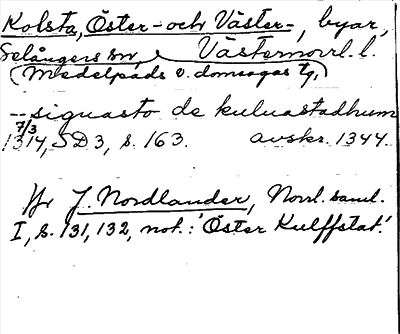 Kolsta, Öster- och Väster-, byar,
Selångers sn, Västernorrl. l.
(Medelpads v. domsagas tg.)
-- siguasto de kuluastadhum
7/3 1314, SD 3, s. 163. avskr. 1344.
Jfr J. Nordlander, Norrl. saml.
I, s. 131, 132, not.: 'Öster Kulffstat.'